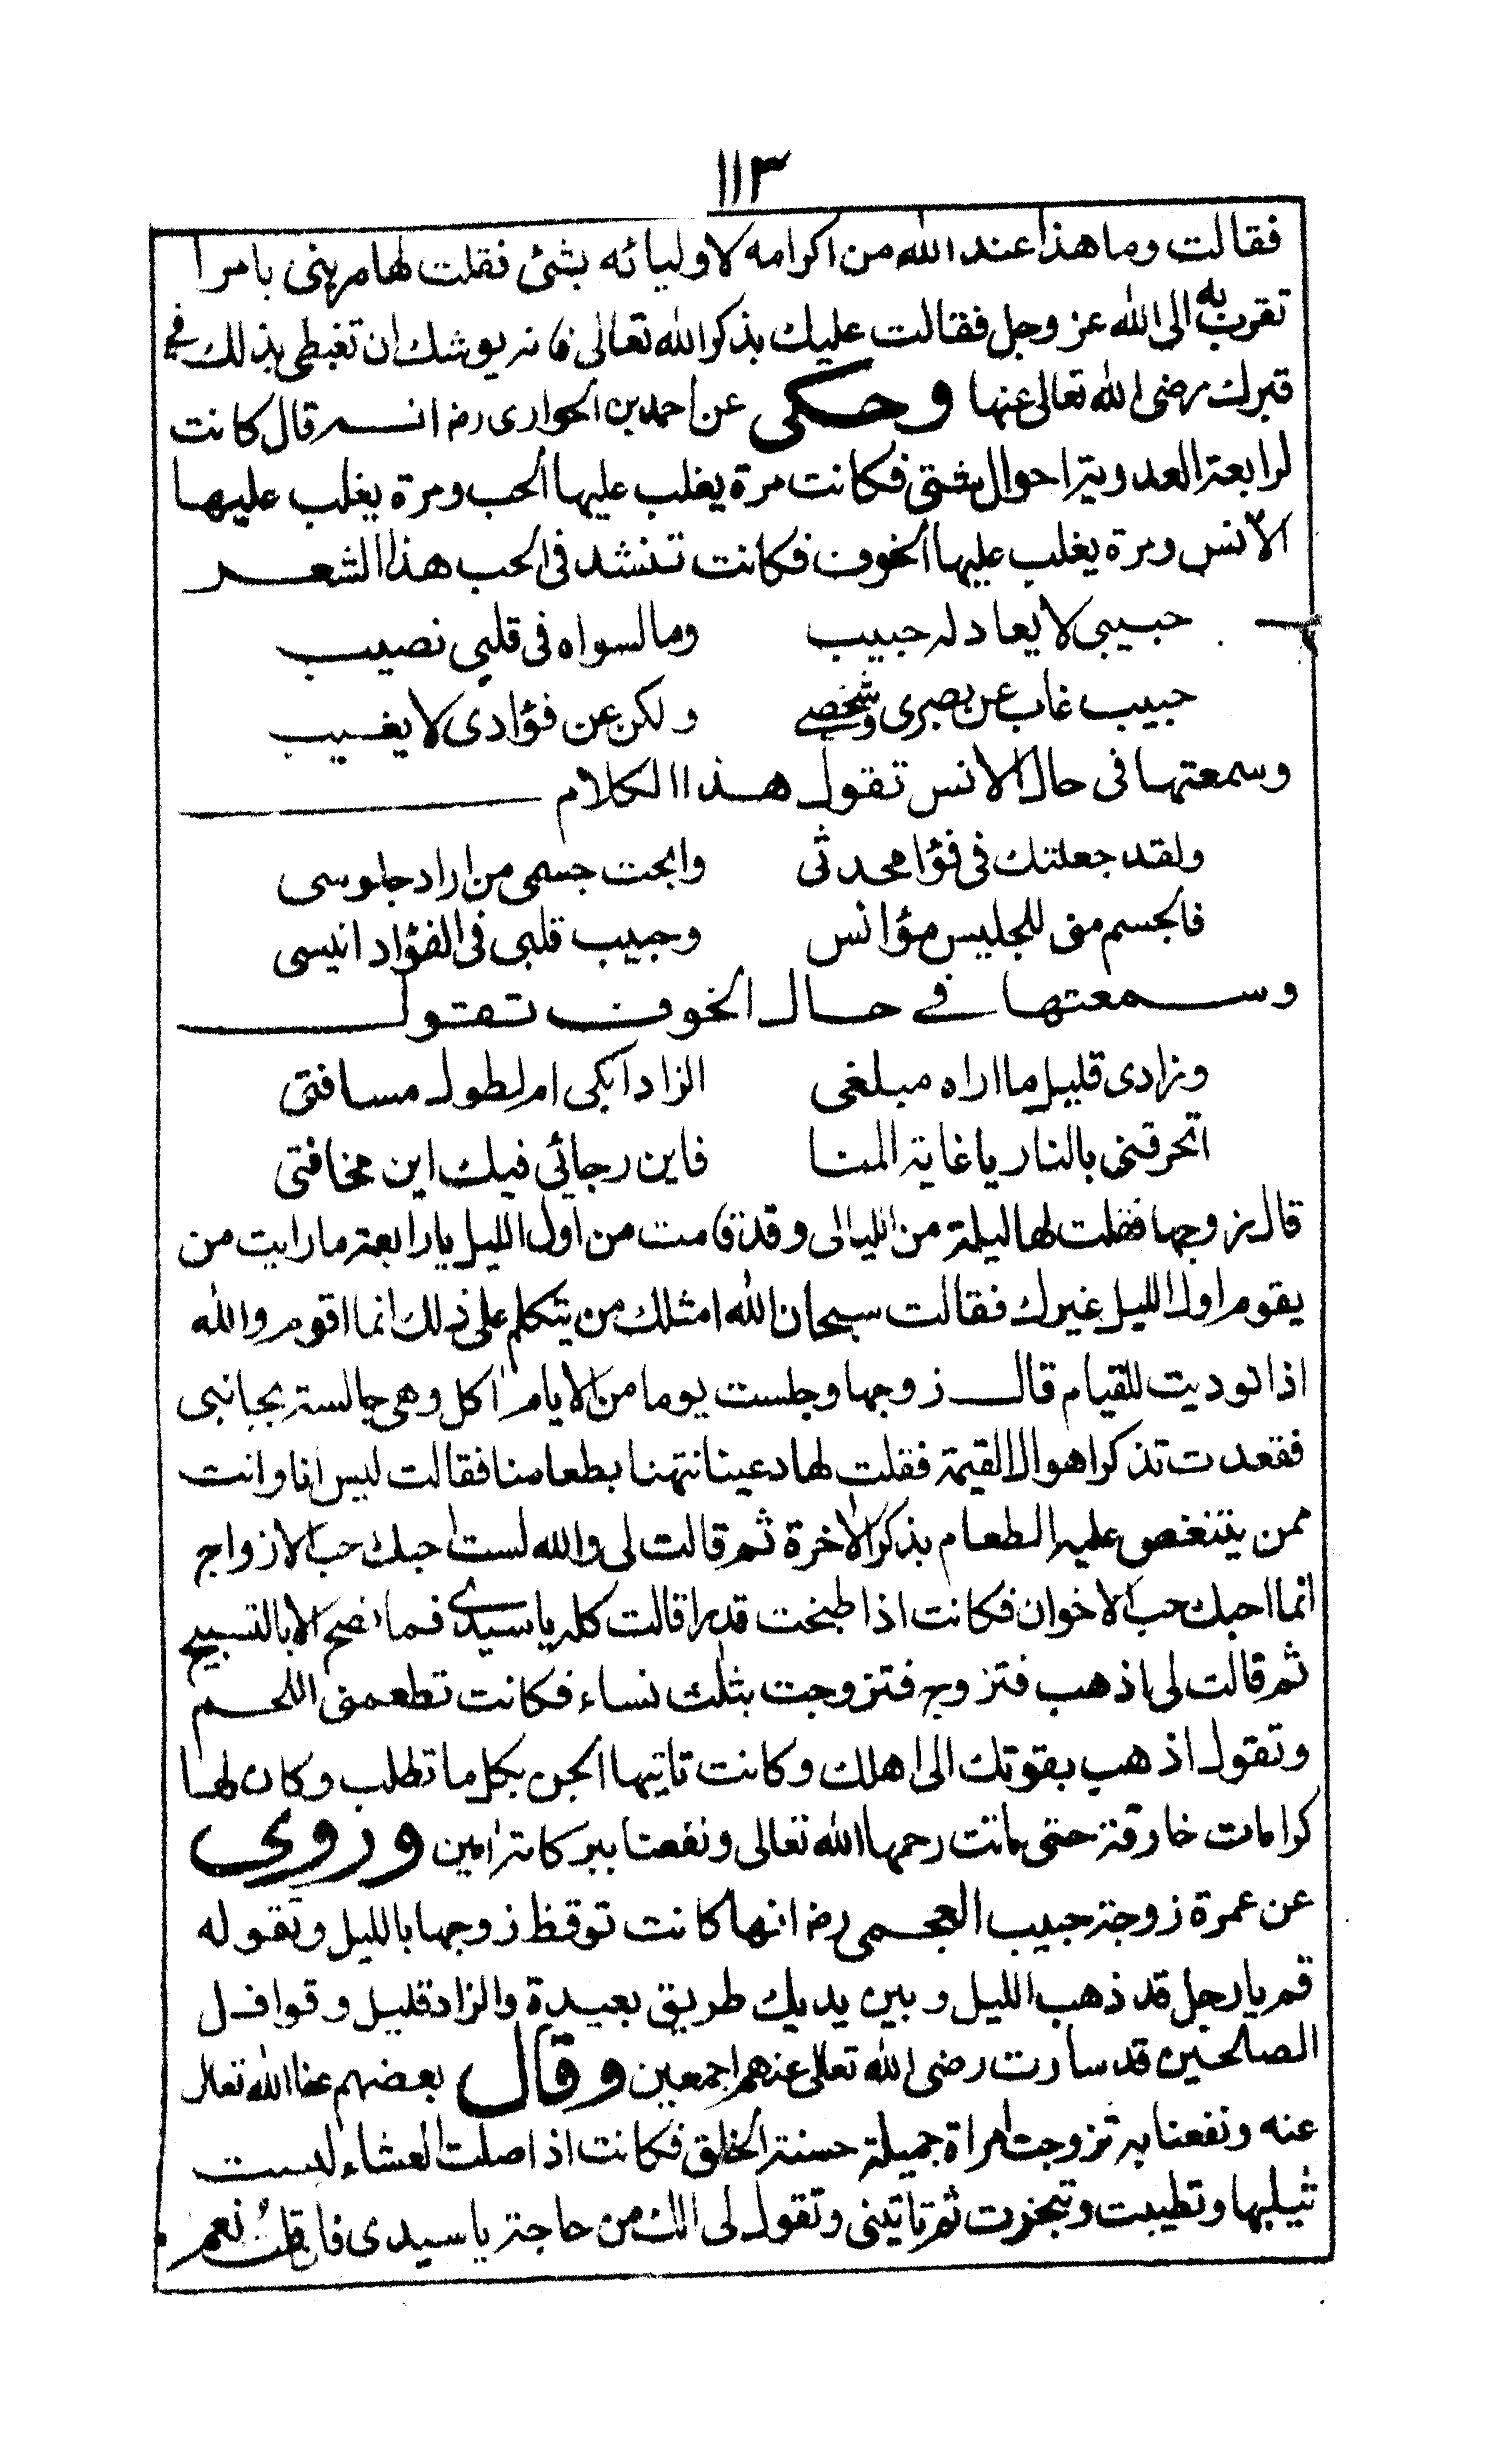 ١١٣
فقالت وما هذا عند الله من اكرامه لاوليائه بشئ فقلت لها مرينى بامر ا
تقرب به الى الله عز وجل فقالت عليك بذكر الله تعالى فانه يوشك ان تغبطى بذلك فى
قبرك رضى الله تعالى عنها وحكى عن احمد بن الحوارى رضـ انـــه قال كانت
لرابعة العدوية احوال شتى فكانت مرة يغلب عليها الحب ومرة يغلب عليها
الانس ومرة يغلب عليها الخوف فكانت تنشد فى الحب هذا الشعر
حبيبى لا يعادله حبيب وما لسواه فى قلبى نصيب
حبيب غاب عن بصرى وشخصى ولكن عن فؤادى لا يغيب
وسمعتها فى حال الانس تقول هذا الكلام
ولقد جعلتك فى فؤا محدثى وابحت جسمى من اراد جلوسى
فالجسم منى للجليس مؤانس وحبيب قلبى فى الفؤاد انيسى
وسمعتها فى حال الخوف تقول
وزادى قليل ما اراه مبلغى الزاد ابكى ام لطول مسافتى
اتحرقنى بالنار يا غاية المنا فاين رجائى فيك اين مخافتى
قال زوجها فقلت لها ليلة من الليالى وقد قامت من اول الليل يا رابعة ما رايت من
يقوم اول الليل غيرك فقالت سبحان الله امثلك من يتكلم على ذلك انما اقوم والله
اذا نوديت للقيام قال زوجها وجلست يوما من الايام اكل وهى جالسة بجانبى
فقعدت تذكر اهوال القيمة فقلت لها دعينا نتهنا بطعامنا فقالت ليس انا وانت
ممن يتنغص عليه الطعام بذكر الاخرة ثم قالت لى والله لست احبك حب الازواج
انما احبك حب الاخوان فكانت اذا طبخت قدرا قالت كله يا سيدى فما نضج الا بالتسبيح
ثم قالت لى اذهب فتزوج فتزوجت بثلث نساء فكانت تطعمنى اللحم
وتقول اذهب بقوتك الى اهلك وكانت تاتيها الجن بكل ما تطلب وكان لها
كرامات خارقة حتى ماتت رحمها الله تعالى ونفعنا ببركاته امين وروى
عن عمرة زوجة حبيب العجمى رضـ انها كانت توقظ زوجها بالليل وتقوله
قم يا رجل قد ذهب الليل وبين يديك طريق بعيدة والزاد قليل وقوافل
الصلحين قد سارت رضى الله تعالى عنهم اجمعين وقال بعضهم عفا الله تعالى
عنه ونفعنا به تزوجت امراة جميلة حسنة الخلق فكانت اذا صلت العشاء لبست
ثيابها وتطيبت وتبخرت ثم تاتينى وتقول لى الك من حاجة يا سيدى فان قلت نعم